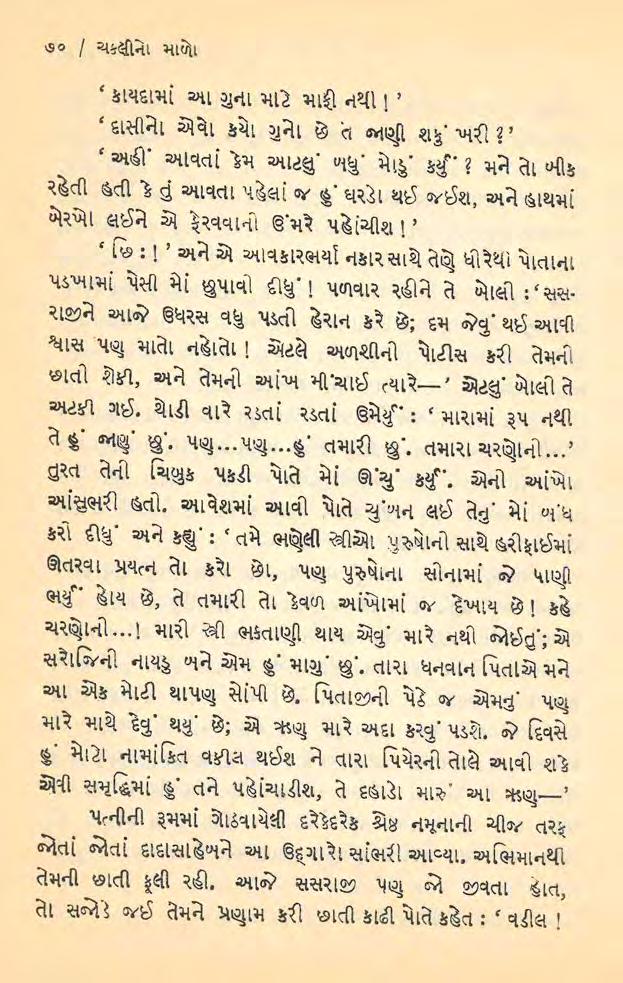 ૭૦ / ચકલીનો માળો
‘ કાયદામાં આ ગુના માટે માફી નથી ! ’
‘ દાસીનો એવો કયો ગુનો છે તે જાણી શકું ખરી ?’
‘ અહીં આવતાં કેમ આટલું બધું મોડું કર્યું ? મને તો બીક
રહેતી હતી કે તું આવતા પહેલાં જ હું ઘરડો થઈ જઈશ, અને હાથમાં
બેરખો લઈને એ ફેરવવાની ઉંમરે પહોંચીશ ! ’
‘ છિ : ! ’ અને એ આવકારભર્યા નકાર સાથે તેણે ધીરેથી પોતાના
પડખામાં પેસી મોં છુપાવી દીધું ! પળવાર રહીને તે બોલી : ‘સસ-
રાજીને આજે ઉધરસ વધુ પડતી હેરાન કરે છે; દમ જેવું થઈ આવી
શ્વાસ પણ માતો નહોતો ! એટલે અળશીની પોટીસ કરી તેમની
છાતી શેકી, અને તેમની આંખ મીંચાઈ ત્યારે—’ એટલું બોલી તે
અટકી ગઈ. થોડી વારે રડતાં રડતાં ઉમેર્યું : ‘ મારામાં રૂપ નથી
તે હું જાણું છું. પણ...પણ...હું તમારી છું. તમારા ચરણોની...’
તુરત તેની ચિબુક પકડી પોતે મોં ઊંચું કર્યું. એની આંખો
આંસુભરી હતી. આવેશમાં આવી પોતે ચુંબન લઈ તેનું મોં બંધ
કરી દીધું અને કહ્યું : ‘ તમે ભણેલી સ્ત્રીઓ પુરુષોની સાથે હરીફાઈમાં
ઊતરવા પ્રયત્ન તો કરો છો, પણ પુરુષોના સીનામાં જે પાણી
ભર્યું હોય છે, તે તમારી તો કેવળ આંખોમાં જ દેખાય છે ! કહે
ચરણોની...! મારી સ્ત્રી ભકતાણી થાય એવું મારે નથી જોઈતું; એ
સરોજિની નાયડુ બને એમ હું માગું છું. તારા ધનવાન પિતાએ મને
આ એક મોટી થાપણ સોંપી છે. પિતાજીની પેઠે જ એમનું પણ
મારે માથે દેવું થયું છે; એ ઋણ મારે અદા કરવું પડશે. જે દિવસે
હું મોટો નામાંકિત વકીલ થઈશ ને તારા પિયેરની તોલે આવી શકે
એવી સમૃદ્ધિમાં હું તને પહોંચાડીશ, તે દહાડો મારું આ ઋણ—’
પત્નીની રૂમમાં ગોઠવાયેલી દરેકેદરેક શ્રેષ્ઠ નમૂનાની ચીજ તરફ
જોતાં જોતાં દાદાસાહેબને આ ઉદ્‌ગારો સાંભરી આવ્યા. અભિમાનથી
તેમની છાતી ફૂલી રહી. આજે સસરાજી પણ જો જીવતા હોત,
તો સજોડે જઈ તેમને પ્રણામ કરી છાતી કાઢી પોતે કહેત : ‘ વડીલ !